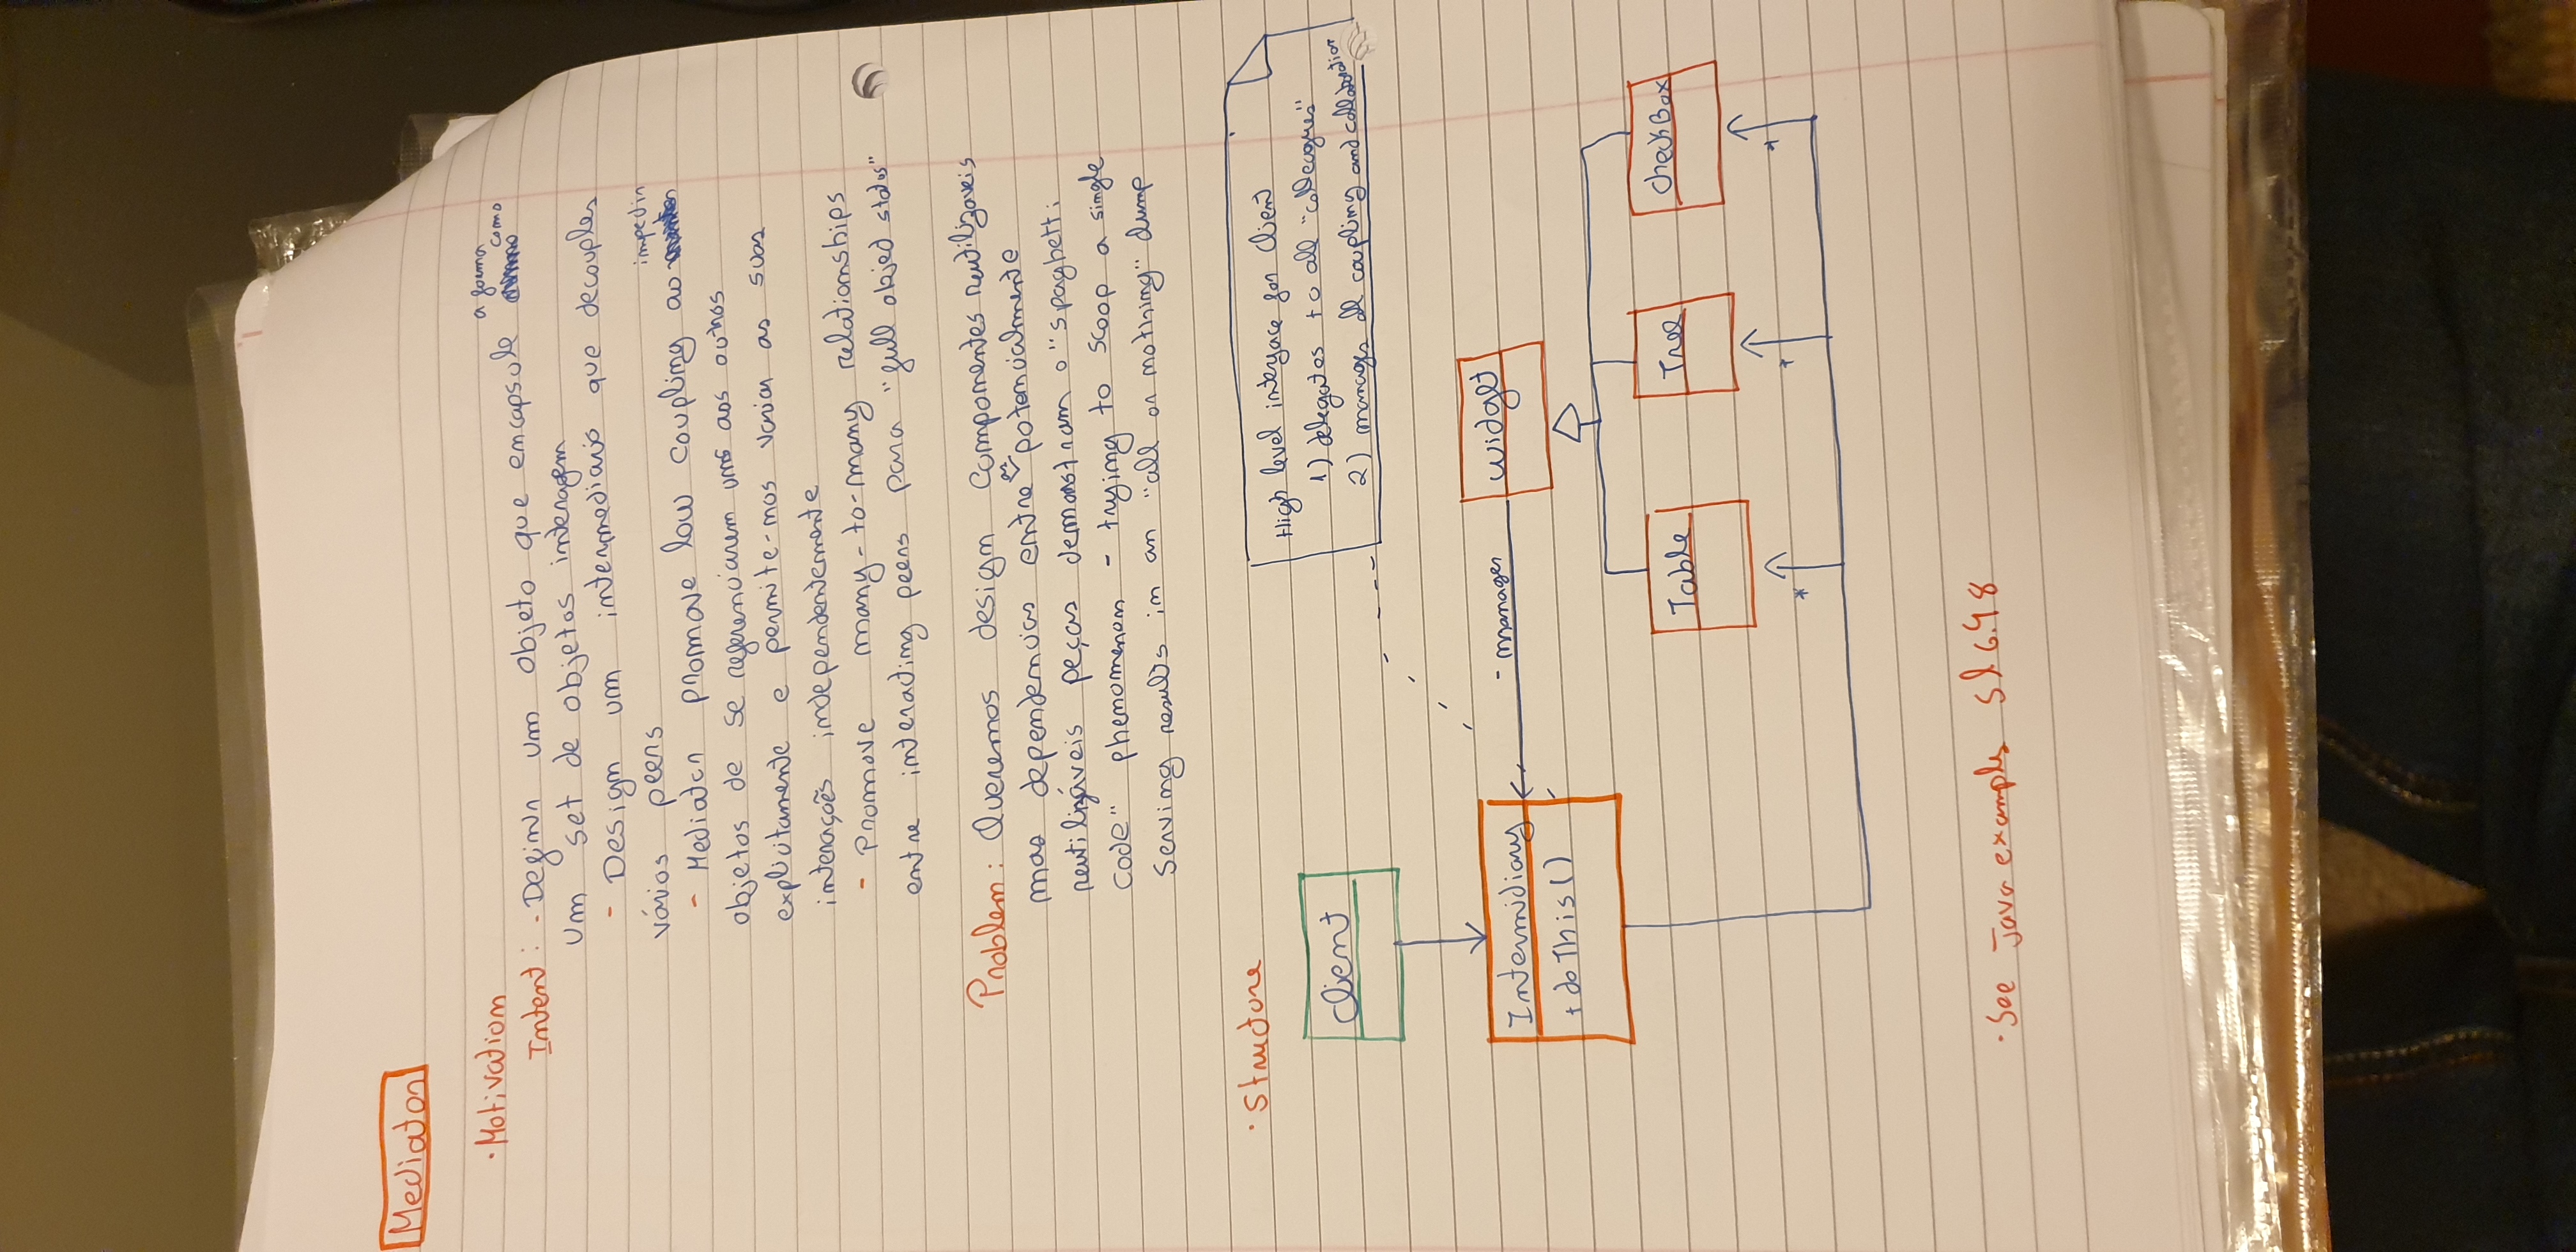 Mediator
· Motivation
Intent: - Definir um objeto que encapsule a forma como
um set de objetos interagem
- Design um intermediario que decouples
vários peers
- Mediator promove low coupling ao impedir
objetos de se referenciarem uns aos outros
explicitamente e permite-nos variar as suas
interações independentemente
- Promove many-to-many relationships
entre interacting peers para "full object status"
Problem: Queremos design componentes reutilizaveis
mas dependencias entre as potencialmente
reutilizáveis peças demonstram o "spaghetti
code" phenomenon - trying to scoop a single
serving results in an "all or nothing" dump
· Structure
High level interface for Client
1) delegates to all "colleagues"
2) manages all coupling and collaboration
Client
Intermidiary
+ doThis()
- manager
Widget
Table
Tree
CheckBox
* * *
· See Java examples Sl 6.48